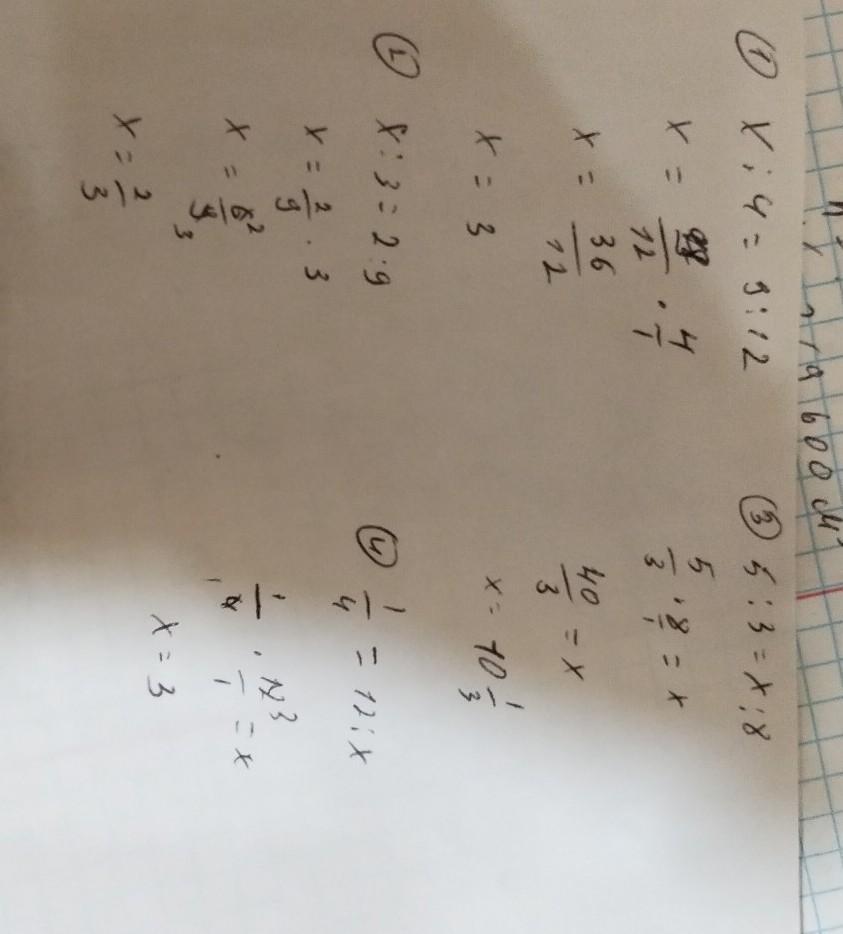 ① x : 4 = 9 : 12
x = 9/12 · 4/1
x = 36/12
x = 3
② x : 3 = 2 : 9
x = 2/9 · 3
x = 6 2/9 3
x = 2/3
③ 5 : 3 = x : 8
5/3 · 8/1 = x
40/3 = x
x = 10 1/3
④ 1/4 = 12 : x
1/4 1 · 12 3/1 = x
x = 3
600